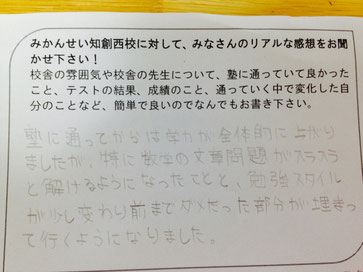 みかんせい知創西校に対して、みなさんのリアルな感想をお聞
かせ下さい！
校舎の雰囲気や校舎の先生について、塾に通っていて良かった
こと、テストの結果、成績のこと、通っていく中で変化した自
分のことなど、簡単で良いのでなんでもお書き下さい。
塾に通ってからは学力が全体的に上がり
ましたが、特に数学の文章問題がスラスラ
と解けるようになったことと、勉強スタイル
が少し変わり前までダメだった部分が埋まっ
て行くようになりました。